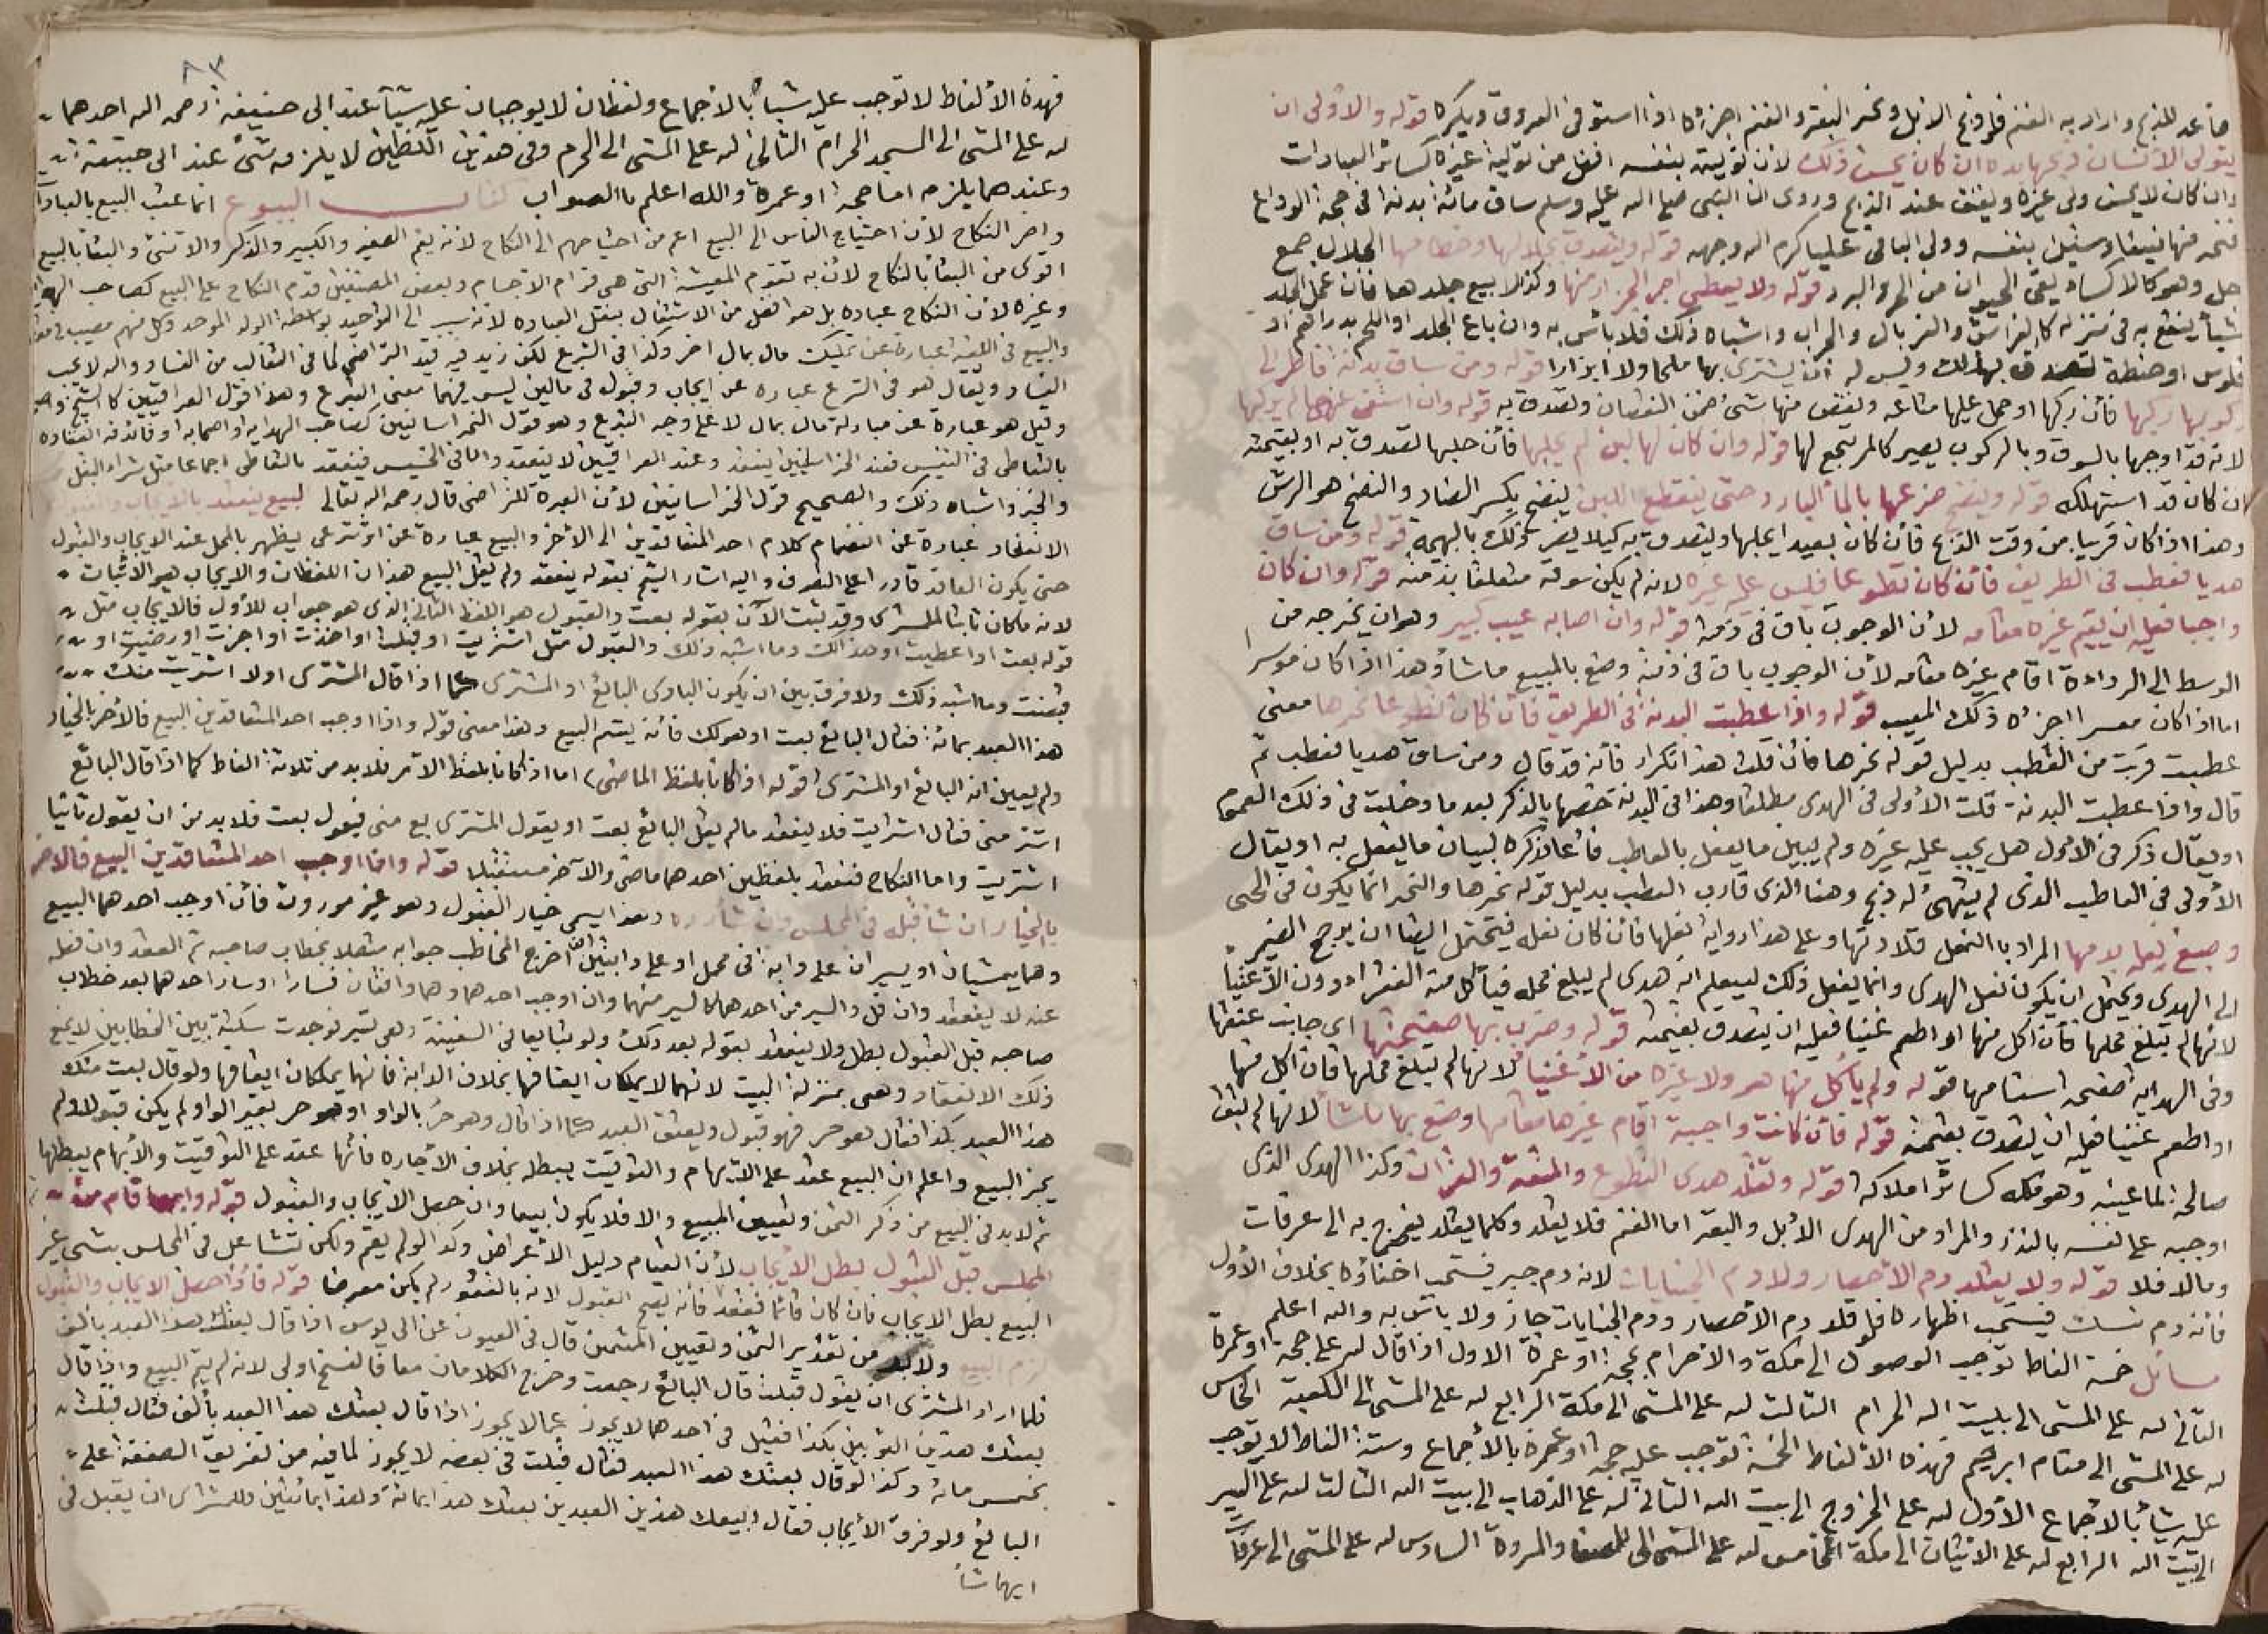 ما عد للذبح واراد به الغنم فلو ذبح الابل ونحر البقر والغنم اجزأه اذا استوفى العروق ويكره قوله والاولى ان
يتولى الانسان ذبحها بيده ان كان يحسن ذلك لان توليته بنفسه افضل من تولية غيره كسائر العبادات
وان كان لا يحسن ولى غيره ويقف عند الذبح وروى ان النبي صلى الله عليه وسلم ساق مائة بدنة في حجة الوداع
فنحر منها نيفا وستين بنفسه وولى الباقي عليا كرم الله وجهه قوله ويتصدق بجلالها وخطامها الجلال جمع
جل وهو كالكساء يقي الحيوان من الحر والبرد قوله ولا يعطي اجر الجزار منها وكذا لا يبيع جلدها فان عمل الجلد
شيأ ينتفع به في منزله كالفراش والغربال والجراب واشباه ذلك فلا بأس به وان باع الجلد او اللحم بدراهم او
فلوس او حنطة تصدق بذلك وليس له ان يشتري بها ملحا ولا ابزارا قوله ومن ساق بدنة فاضطر الى
ركوبها ركبها فان ركبها او حمل عليها متاعه ونقص منها شئ ضمن النقصان وتصدق به قوله وان استغنى عنها لم يركبها
لانه قد اوجبها بالسوق وبالركوب يصير كالمرتجع لها قوله وان كان لها لبن لم يحلبها فان حلبها تصدق به او بقيمته
ان كان قد استهلكه قوله وينضح ضرعها بالماء البارد حتى ينقطع اللبن ينضح بكسر الضاد والنضح هو الرش
وهذا اذا كان قريبا من وقت الذبح فان كان بعيدا يحلبها ويتصدق به كيلا يضر ذلك بالبهيمة قوله ومن ساق
هديا فعطب في الطريق فان كان تطوعا فليس عليه غيره لانه لم يكن سوقه متعلقا بذمته قوله وان كان
واجبا فعليه ان يقيم غيره مقامه لان الوجوب باق في ذمته قوله وان اصابه عيب كبير وهو ان يخرجه من
الوسط الى الرداءة اقام غيره مقامه لان الوجوب باق في ذمته وصنع بالمبيع ماشاء وهذا اذا كان موسرا
اما اذا كان معسرا اجزأه ذلك المعيب قوله واذا عطبت البدنة في الطريق فان كان تطوعا نحرها معنى
عطبت قربت من العطب بدليل قوله نحرها فان قلت هذا تكرار فانه قد قال ومن ساق هديا فعطب ثم
قال واذا عطبت البدنة قلت الاولى في الهدي مطلقا وهذا في البدنة خصها بالذكر بعد ما دخلت في ذلك العموم
او يقال ذكر في الاول هل يجب عليه غيره ولم يبين ما يفعل بالعاطب فاعاد ذكره لبيان ما يفعل به او يقال
الاولى في العاطب الذي لم يتهيأ له ذبح وهنا الذي قارب العطب بدليل قوله نحرها والنحر انما يكون في الحي
وصبغ نعلها بدمها المراد بالنعل قلادتها وعلى هذا رواية نعلها فان كان نعله فيحتمل ايضا ان يرجع الضمير
الى الهدي ويحتمل ان يكون نعل الهدي وانما يفعل ذلك ليعلم انه هدي لم يبلغ محله فيأكل منه الفقراء دون الاغنياء
لانها لم تبلغ محلها فان اكل منها او اطعم غنيا فعليه ان يتصدق بقيمته قوله وضرب بها صفحتها اي جانب عنقها
وفي الهداية صفحة اسنامها قوله ولم يأكل منها هو ولا غيره من الاغنياء لانها لم تبلغ محلها فان اكل منها
او اطعم غنيا فعليه ان يتصدق بقيمته قوله فان كانت واجبة اقام غيرها مقامها وصنع بها ماشاء لانها لم تبق
صالحة لما عينه وهو ملكه كسائر املاكه قوله وتقلد هدي التطوع والمتعة والقران وكذا الهدي الذي
اوجبه على نفسه بالنذر والمراد من الهدي الابل والبقر اما الغنم فلا يقلد وكلما يقلد يخرج به الى عرفات
ومالا فلا قوله ولا يقلد دم الاحصار ولا دم الجنايات لانه دم جبر فيستحب اخفاؤه بخلاف الاول
فانه دم نسك فيستحب اظهاره فلو قلد دم الاحصار ودم الجنايات جاز ولا بأس به والله اعلم
مسائل خمسة الفاظ توجب الوصول الى مكة والاحرام بحجة او عمرة الاول اذا قال لله علي حجة او عمرة
الثاني لله علي المشي الى بيت الله الحرام الثالث لله علي المشي الى مكة الرابع لله علي المشي الى الكعبة الخامس
لله علي المشي الى مقام ابرهيم فهذه الالفاظ الخمسة توجب عليه حجة او عمرة بالاجماع وستة الفاظ لا توجب
عليه شيأ بالاجماع الاول لله علي الخروج الى بيت الله الثاني لله علي الذهاب الى بيت الله الثالث لله علي السير
الى بيت الله الرابع لله علي الاتيان الى مكة الخامس لله علي المشي الى الصفا والمروة السادس لله علي المشي الى عرفات
٨٣
فهذه الالفاظ لا توجب عليه شيأ بالاجماع ولفظان لا يوجبان عليه شيأ عند ابي حنيفة رحمه الله احدهما
لله علي المشي الى المسجد الحرام الثاني لله علي المشي الى الحرم وفي هذين اللفظين لا يلزمه شئ عند ابي حنيفة
وعندهما يلزمه اما حجة او عمرة والله اعلم بالصواب كتاب البيوع انما عقب البيع بالعبادات
واخر النكاح لان احتياج الناس الى البيع اعم من احتياجهم الى النكاح لانه يعم الصغير والكبير والذكر والانثى والبقاء بالبيع
اقوى من البقاء بالنكاح لان به تقوم المعيشة التي هي قوام الاجسام وبعض المصنفين قدم النكاح على البيع كصاحب الهداية
وغيره لان النكاح عبادة بل هو افضل من الاشتغال بنفل العبادة لانه سبب الى التوحيد بواسطة الولد الموحد وكل منهم مصيب في
والبيع في اللغة عبارة عن تمليك مال بمال اخر وكذا في الشرع لكن زيد فيه قيد التراضي لما في التغالب من الفساد والله لا يحب
الفساد ويقال هو في الشرع عبارة عن ايجاب وقبول في مالين ليس فيهما معنى التبرع وهذا قول العراقيين كالشيخ
وقيل هو عبارة عن مبادلة مال بمال لا على وجه التبرع وهو قول الخراسانيين كصاحب الهداية واصحابه وفائدته انعقاده
بالتعاطي في النفيس فعند الخراسانيين ينعقد وعند العراقيين لا ينعقد واما في الخسيس فينعقد بالتعاطي اجماعا مثل شراء البقل
والخبز واشباه ذلك والصحيح قول الخراسانيين لان العبرة للتراضي قال رحمه الله تعالى البيع ينعقد بالايجاب والقبول
الانعقاد عبارة عن انضمام كلام احد المتعاقدين الى الاخر والبيع عبارة عن اثر شرعي يظهر بالمحل عند الايجاب والقبول
حتى يكون العاقد قادرا على التصرف واليه اشار الشيخ بقوله ينعقد ولم يقل البيع هذان اللفظان والايجاب هو الاثبات
لانه ما كان ثابتا للمشتري وقد ثبت الآن بقوله بعت والقبول هو اللفظ الثاني الذي هو جواب للاول فالايجاب مثل
قوله بعت او اعطيت او هذا لك وما اشبه ذلك والقبول مثل اشتريت او قبلت او اخذت او اجزت او رضيت او
قبضت وما اشبه ذلك ولا فرق بين ان يكون البادي البائع او المشتري كما اذا قال المشتري اولا اشتريت منك
هذا العبد بمائة فقال البائع بعت او هو لك فانه يتم البيع وهذا معنى قوله واذا اوجب احد المتعاقدين البيع فالاخر بالخيار
ولم يعين انه البائع او المشتري قوله اذا كانا بلفظ الماضي اما اذا كانا بلفظ الامر فلا بد من ثلاثة الفاظ كما اذا قال البائع
اشتر مني فقال اشتريت فلا ينعقد ما لم يقل البائع بعت او يقول المشتري بع مني فيقول بعت فلا بد من ان يقول ثانيا
اشتريت واما النكاح فينعقد بلفظين احدهما ماض والآخر مستقبل قوله واذا اوجب احد المتعاقدين البيع فالاخر
بالخيار ان شاء قبله في المجلس وان شاء رده وهذا يسمى خيار القبول وهو غير موروث فان اوجب احدهما البيع
وهما يمشيان او يسيران على دابة في محمل او على دابتين اخرج المخاطب جوابه متصلا بخطاب صاحبه تم العقد وان فصله
عنه لا ينعقد وان قل والسير من احدهما كالسير منهما وان اوجب احدهما وهما واقفان فسارا او سار احدهما بعد خطاب
صاحبه قبل القبول بطل ولا ينعقد بقوله بعد ذلك ولو تبايعا في السفينة وهي تسير فوجدت سكتة بين الخطابين لا يمنع
ذلك الانعقاد وهي بمنزلة البيت لانهما لا يملكان ايقافها بخلاف الدابة فانهما يملكان ايقافها ولو قال بعت منك
هذا العبد بكذا فقال هو حر فهو قبول ويعتق العبد كما اذا قال وهو حر بالواو او هو حر بغير الواو لم يكن قبولا ولم
يجز البيع واعلم ان البيع عقد على الابهام والتوقيت يبطله بخلاف الاجارة فانها عقد على التوقيت والابهام يبطلها
ثم لا بد في البيع من ذكر الثمن وتعيين المبيع والا فلا يكون بيعا وان حصل الايجاب والقبول قوله وايهما قام من
المجلس قبل القبول بطل الايجاب لان القيام دليل الاعراض وكذا لو لم يقم ولكن تشاغل في المجلس بشئ غير
البيع بطل الايجاب فان كان قائما فقعد فانه يصح القبول لانه بالقعود لم يكن معرضا قوله فاذا حصل الايجاب والقبول
لزم البيع ولا بد من تقدير الثمن وتعيين المثمن قال في العيون عن ابي يوسف اذا قال بعتك هذا العبد بالف
فلما اراد المشتري ان يقول قبلت قال البائع رجعت وخرج الكلامان معا فالفسخ اولى لانه لم يتم البيع واذا قال
بعتك هذين الثوبين بكذا فقبل في احدهما لا يجوز اذا قال بعتك هذا العبد بألف فقال قبلت
بخمس مائة وكذا لو قال بعتك هذا العبد فقال قبلت في بعضه لا يجوز لما فيه من تفريق الصفقة على
البائع ولو فرق الايجاب فقال ابيعك هذين العبدين بعتك هذا بمائة وهذا بمائتين فللمشتري ان يقبل في
ايهما شاء